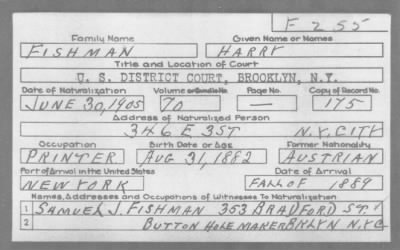 F 255
Family Name Given Name or Names
FISHMAN HARRY
Title and Location of Court
U. S. DISTRICT COURT, BROOKLYN, N.Y.
Date of Naturalization Volume or Bundle No. Page No. Copy of Record No.
JUNE 30, 1905 70 — 175
Address of Naturalized Person
346 E 3ST N.Y. CITY
Occupation Birth Date or Age Former Nationality
PRINTER AUG 31, 1882 AUSTRIAN
Port of Arrival in the United States Date of Arrival
NEW YORK FALL OF 1889
Names, Addresses and Occupations of Witnesses To Naturalization
1 SAMUEL J. FISHMAN 353 BRADFORD ST
2 BUTTON HOLE MAKER BKLYN N.Y.C